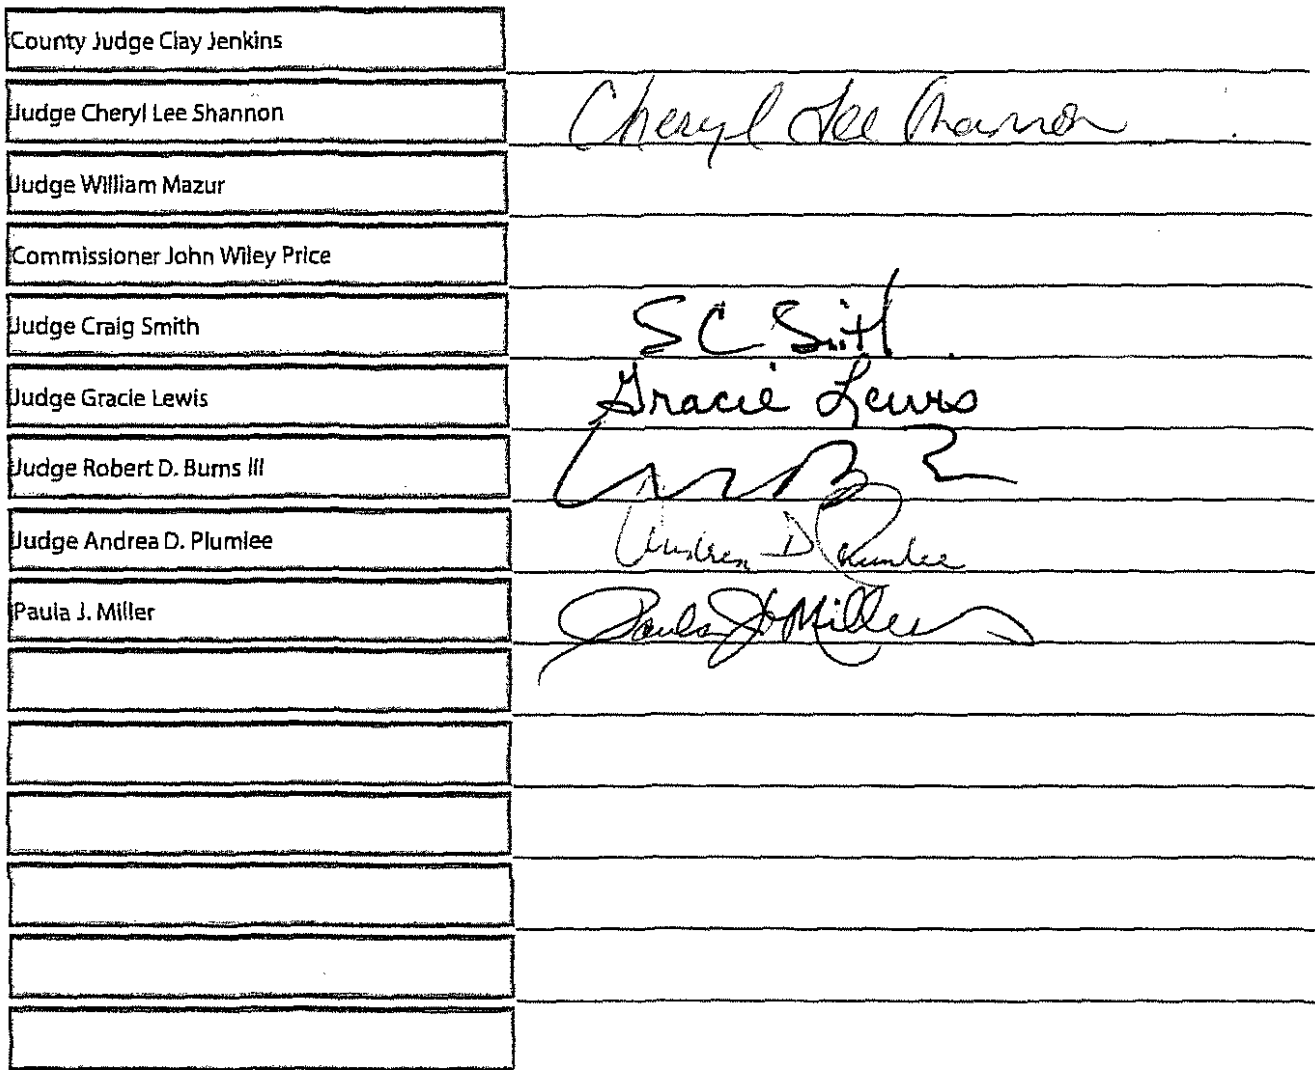 County Judge Clay Jenkins
Judge Cheryl Lee Shannon Cheryl Lee Shannon
Judge William Mazur
Commissioner John Wiley Price
Judge Craig Smith SC Smith
Judge Gracie Lewis Gracie Lewis
Judge Robert D. Burns III
Judge Andrea D. Plumlee Andrea D Plumlee
Paula J. Miller Paula J. Miller